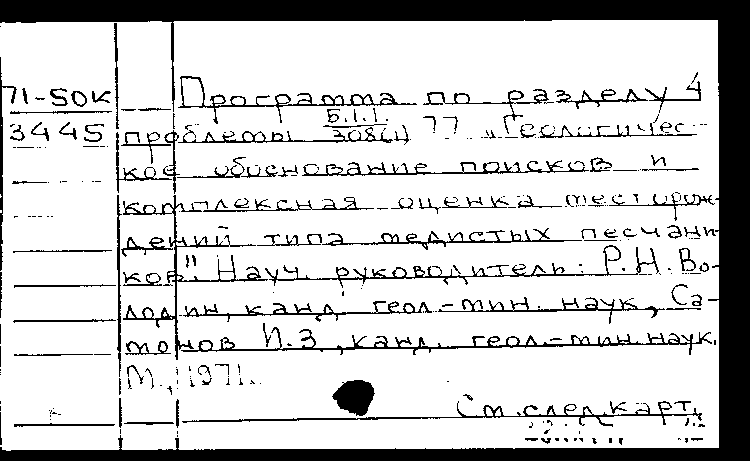 71-50к Программа по разделу 4
3445 проблемы Б.1.1. 308(1) 77 „Геологичес-
кое обоснование поисков и
комплексная оценка месторож-
дений типа медистых песчани-
ков". Науч. руководитель: Р.Н. Во-
лодин, канд. геол.-мин. наук, Са-
монов И.З, канд. геол.-мин. наук.
М., 1971.
См. след. карт.